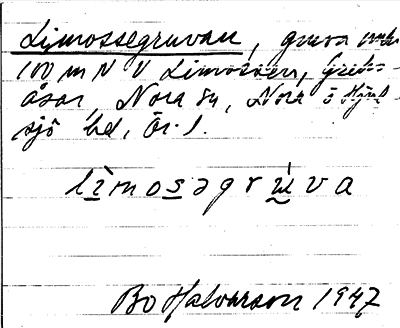 Limossegruvan, gruva omkr
100 m N V Limossen, Greks-
åsar, Nora sn, Nora o Hjul-
sjö bd, Ör. l.
lìmosəgrùva
Bo Halvarson 1947